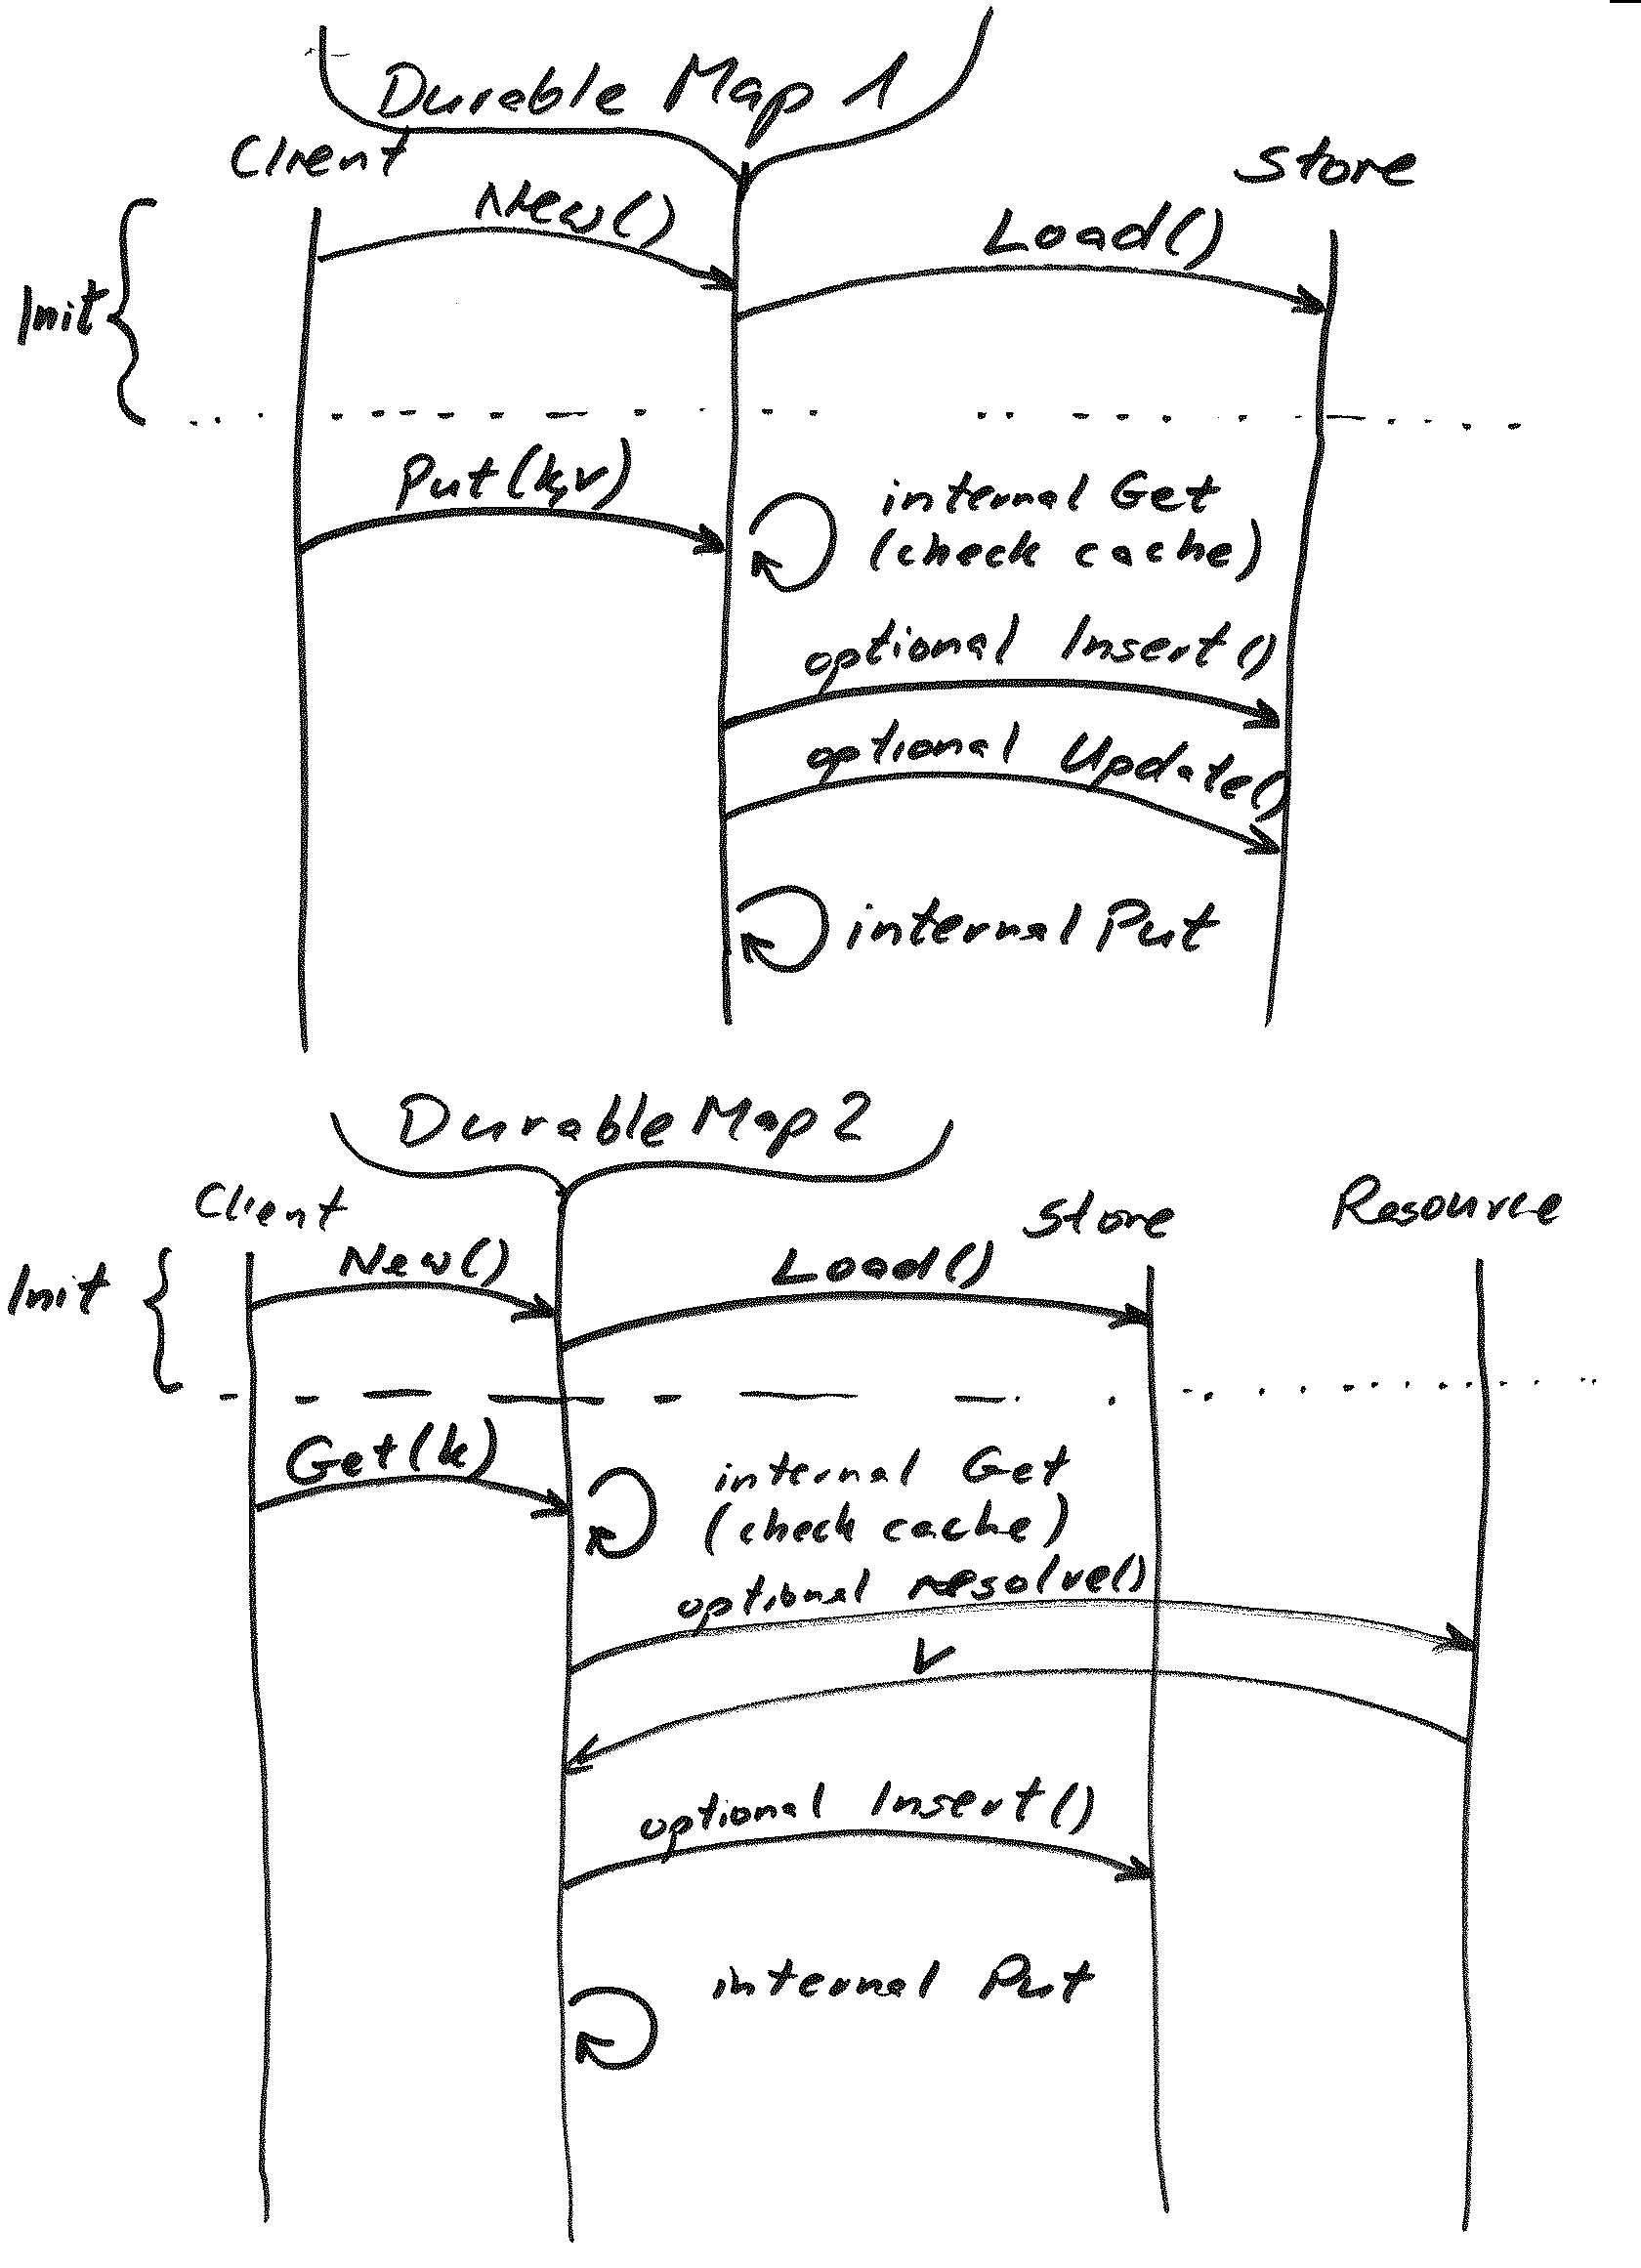 Durable Map 1
Client
Store
New()
Load()
Init
Put(k,v)
internal Get
(check cache)
optional Insert()
optional Update()
internal Put
Durable Map 2
Client
Store
Resource
New()
Load()
Init
Get(k)
internal Get
(check cache)
optional resolve()
v
optional Insert()
internal Put